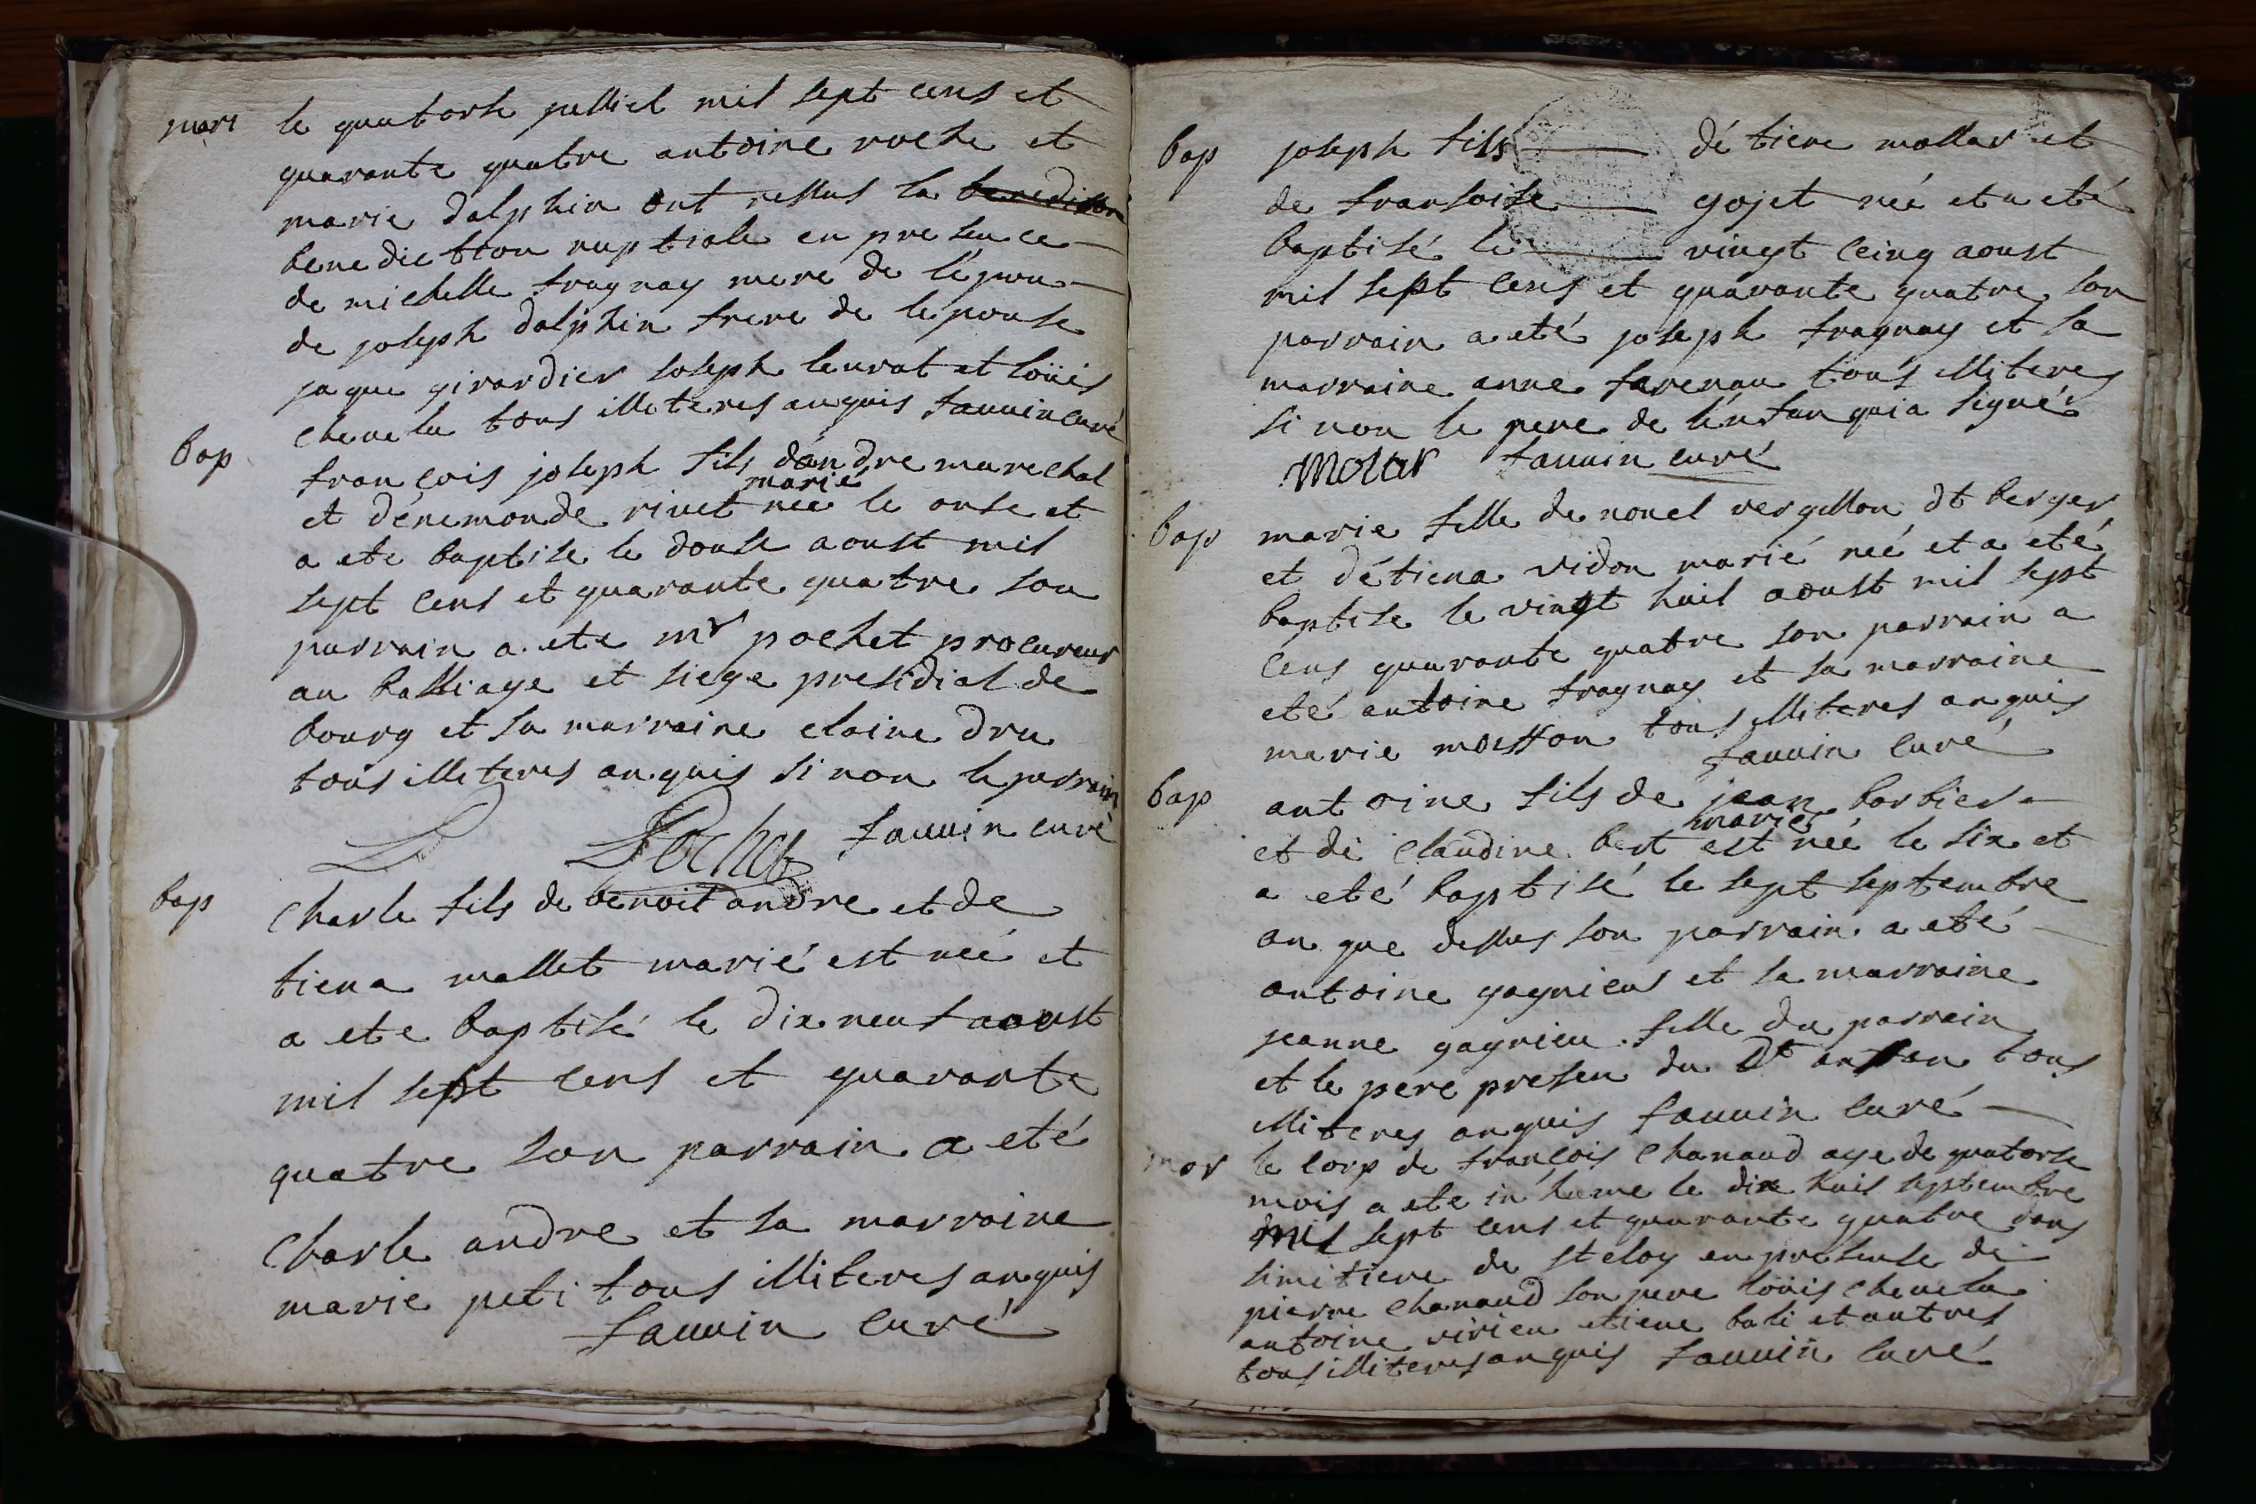 mari
le quatorse julliel mil sept cens et
quarante quatre antoine roche et
marie dalphin ont ressus la benediction
benediction nuptiale en presence
de michelle fragnay mere de l'epou
de joseph dalphin frere de l'epouse
jaque girardier joseph leurat et loüis
chenelu tous illiteres anquis fauuin curé
bap
françois joseph fils d'andre marechal
et d'enemonde rivet marié née le onse et
a ete baptise le douse aoust mil
sept cens et quarante quatre son
parrain a ete mr pochet procureur
au balliage et siege presidial de
bourg et sa marraine claine dru
tous illiteres anquis si non le parrain
Pochet fauuin curé
bap
charle fils de benoit andre et de
tiena mallet marié est née et
a ete baptisé le dix neuf aoust
mil sept cens et quarante
quatre son parrain a eté
charle andre et sa marraine
marie peti tous illiteres anquis
fauuin curé
bap
joseph fils détiene mollar et
de fransoise gojet née et a eté
baptisé le vingt ceinq aoust
mil sept cens et quarante quatre son
parrain a eté joseph fragnay et sa
marraine anne farenau tous illiteres
si non le pere de l'enfan qui a signé
Molar fauuin curé
bap
marie fille de nouel vergillon dt berger
et détiena vidon marié née et a eté
baptise le vingt huit aoust mil sept
cens quarante quatre son parrain a
eté antoine fragnay et sa marraine
marie moisson tous illiteres anquis
fauuin curé
bap
antoine fils de jean barbier
et de claudine bert mariés est née le six et
a eté baptisé le sept septembre
an que dessus son parrain a eté
antoine gagnieus et sa marraine
jeanne gagnieu fille du parrain
et le pere presen du dt anfan tous
illiteres anquis fauuin curé
mor
le corp de françois chanaud age de quatorse
mois a ete in hume le dix huit septembre
mil sept cens et quarante quatre dans
simitiere de st eloy en presense de
pierre chanaud son pere loüis chenelu
antoine virieu etiene bali et autres
tous illiteres anquis fauuin curé